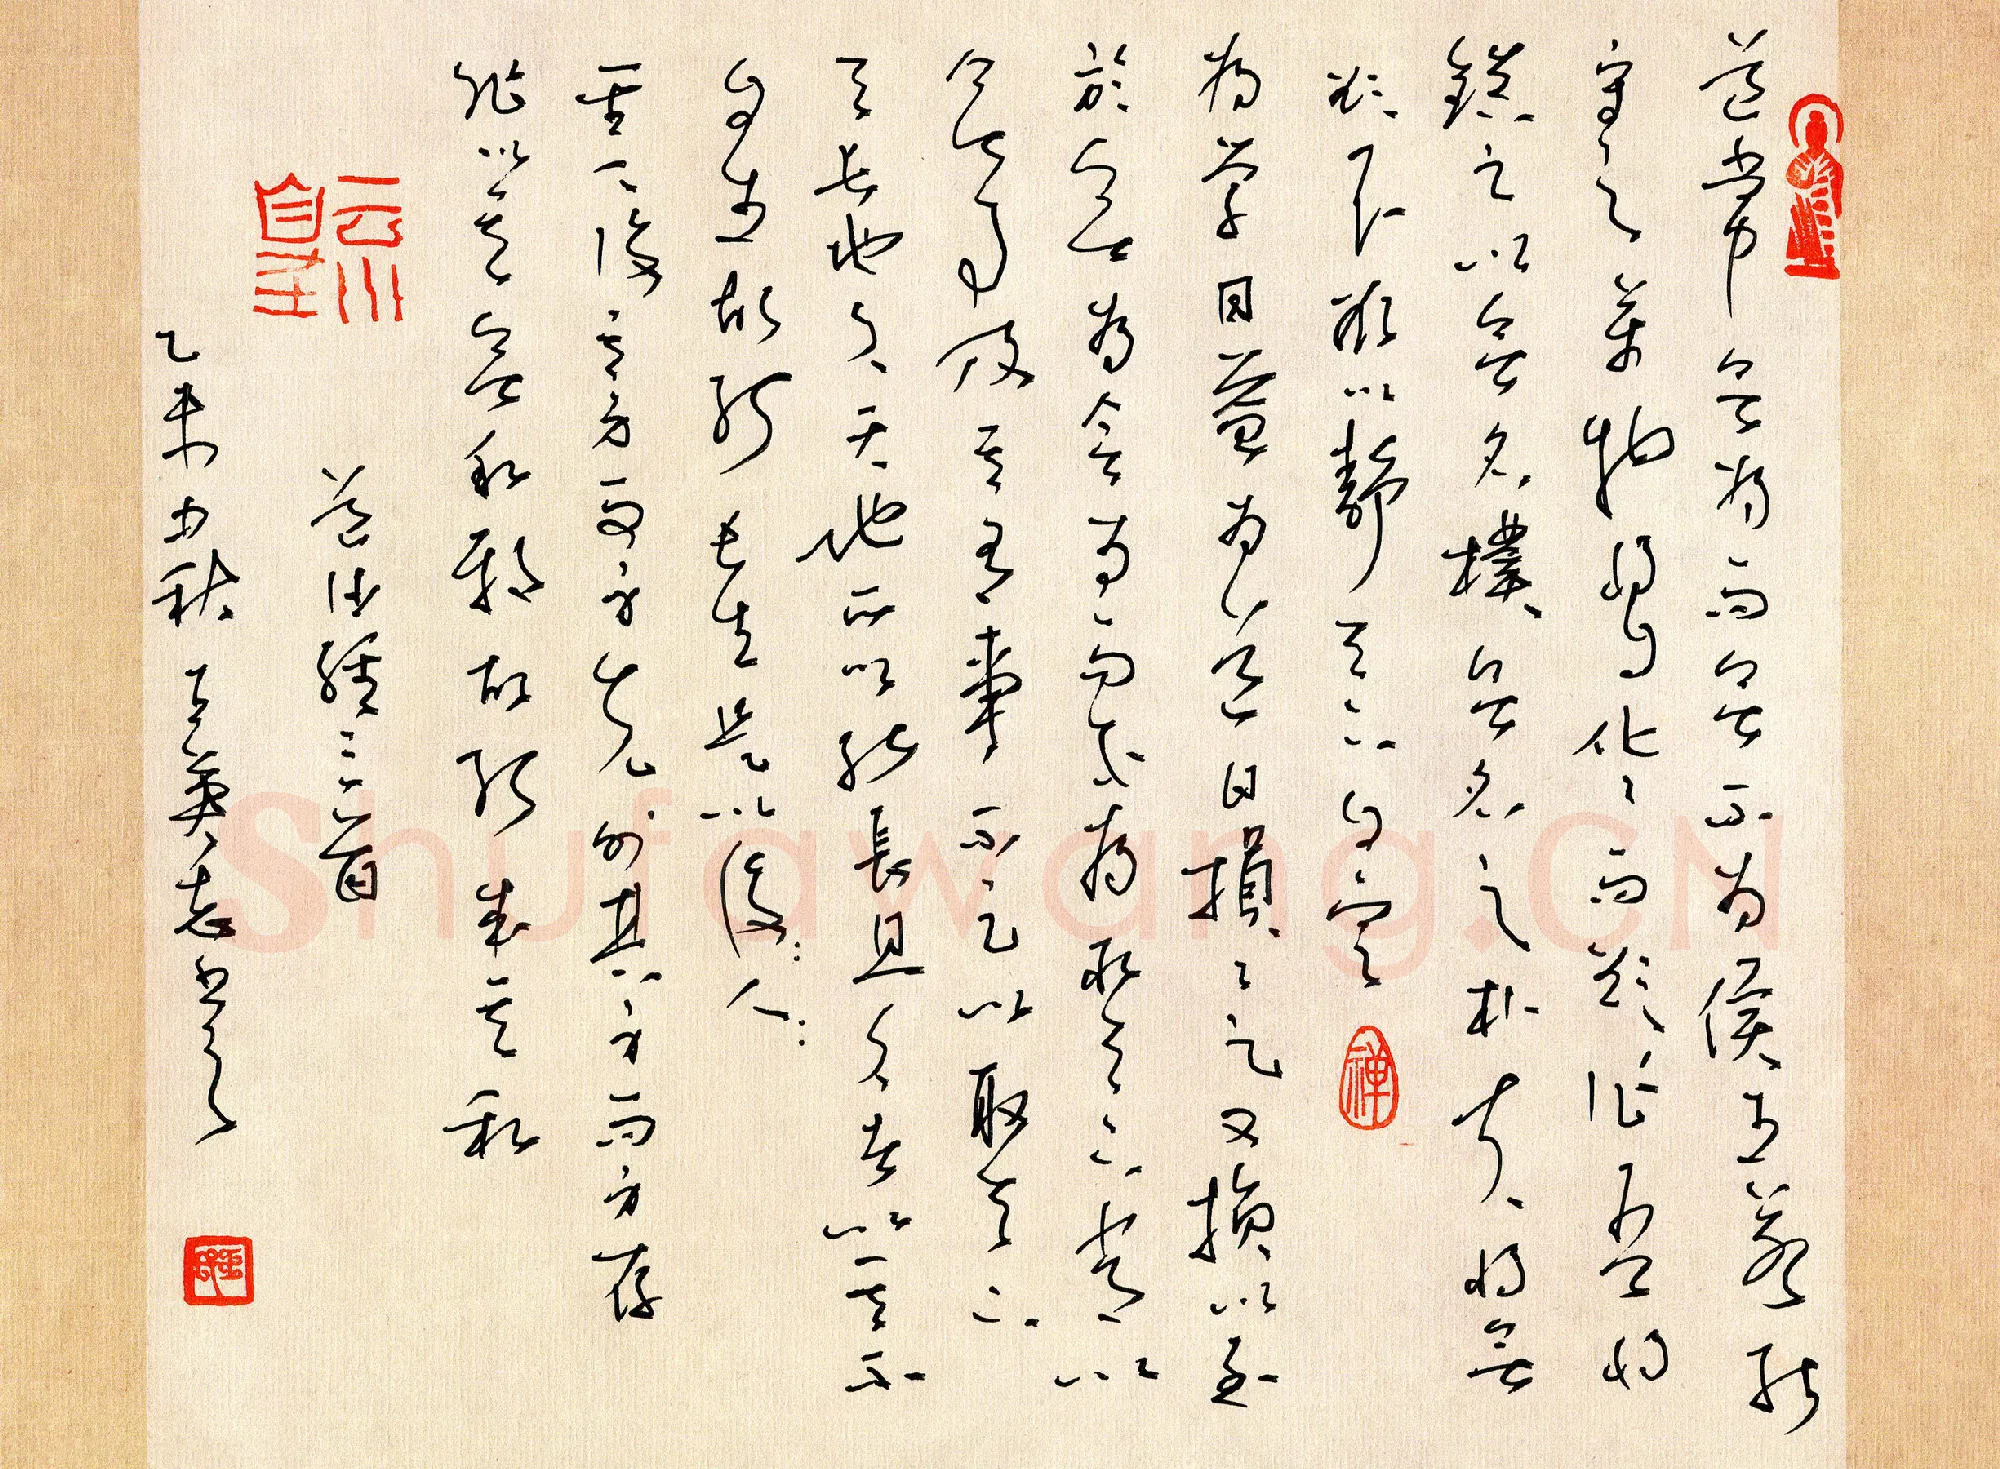 道常無為而無不為侯王若能
守之萬物將自化〻而欲作吾將
鎮之以無名樸無名之朴夫將無
欲不欲以靜天下自定
禅
為學日益為道日損〻之又損以至
於無為無為而不為取天下常以
無事及其有事不足以取天下
天長地久天地所以能長且久者以其不
自生故能長生是以後人
聖人後其身而身先外其身而身存
非以其無私邪故能成其私
道德經三首
乙未中秋
Shufawang.CN